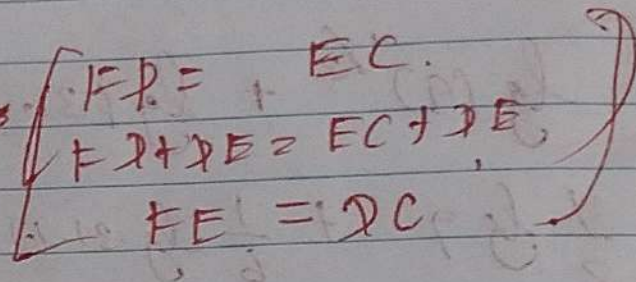 FD = EC.
FD + DE = EC + DE,
FE = DC